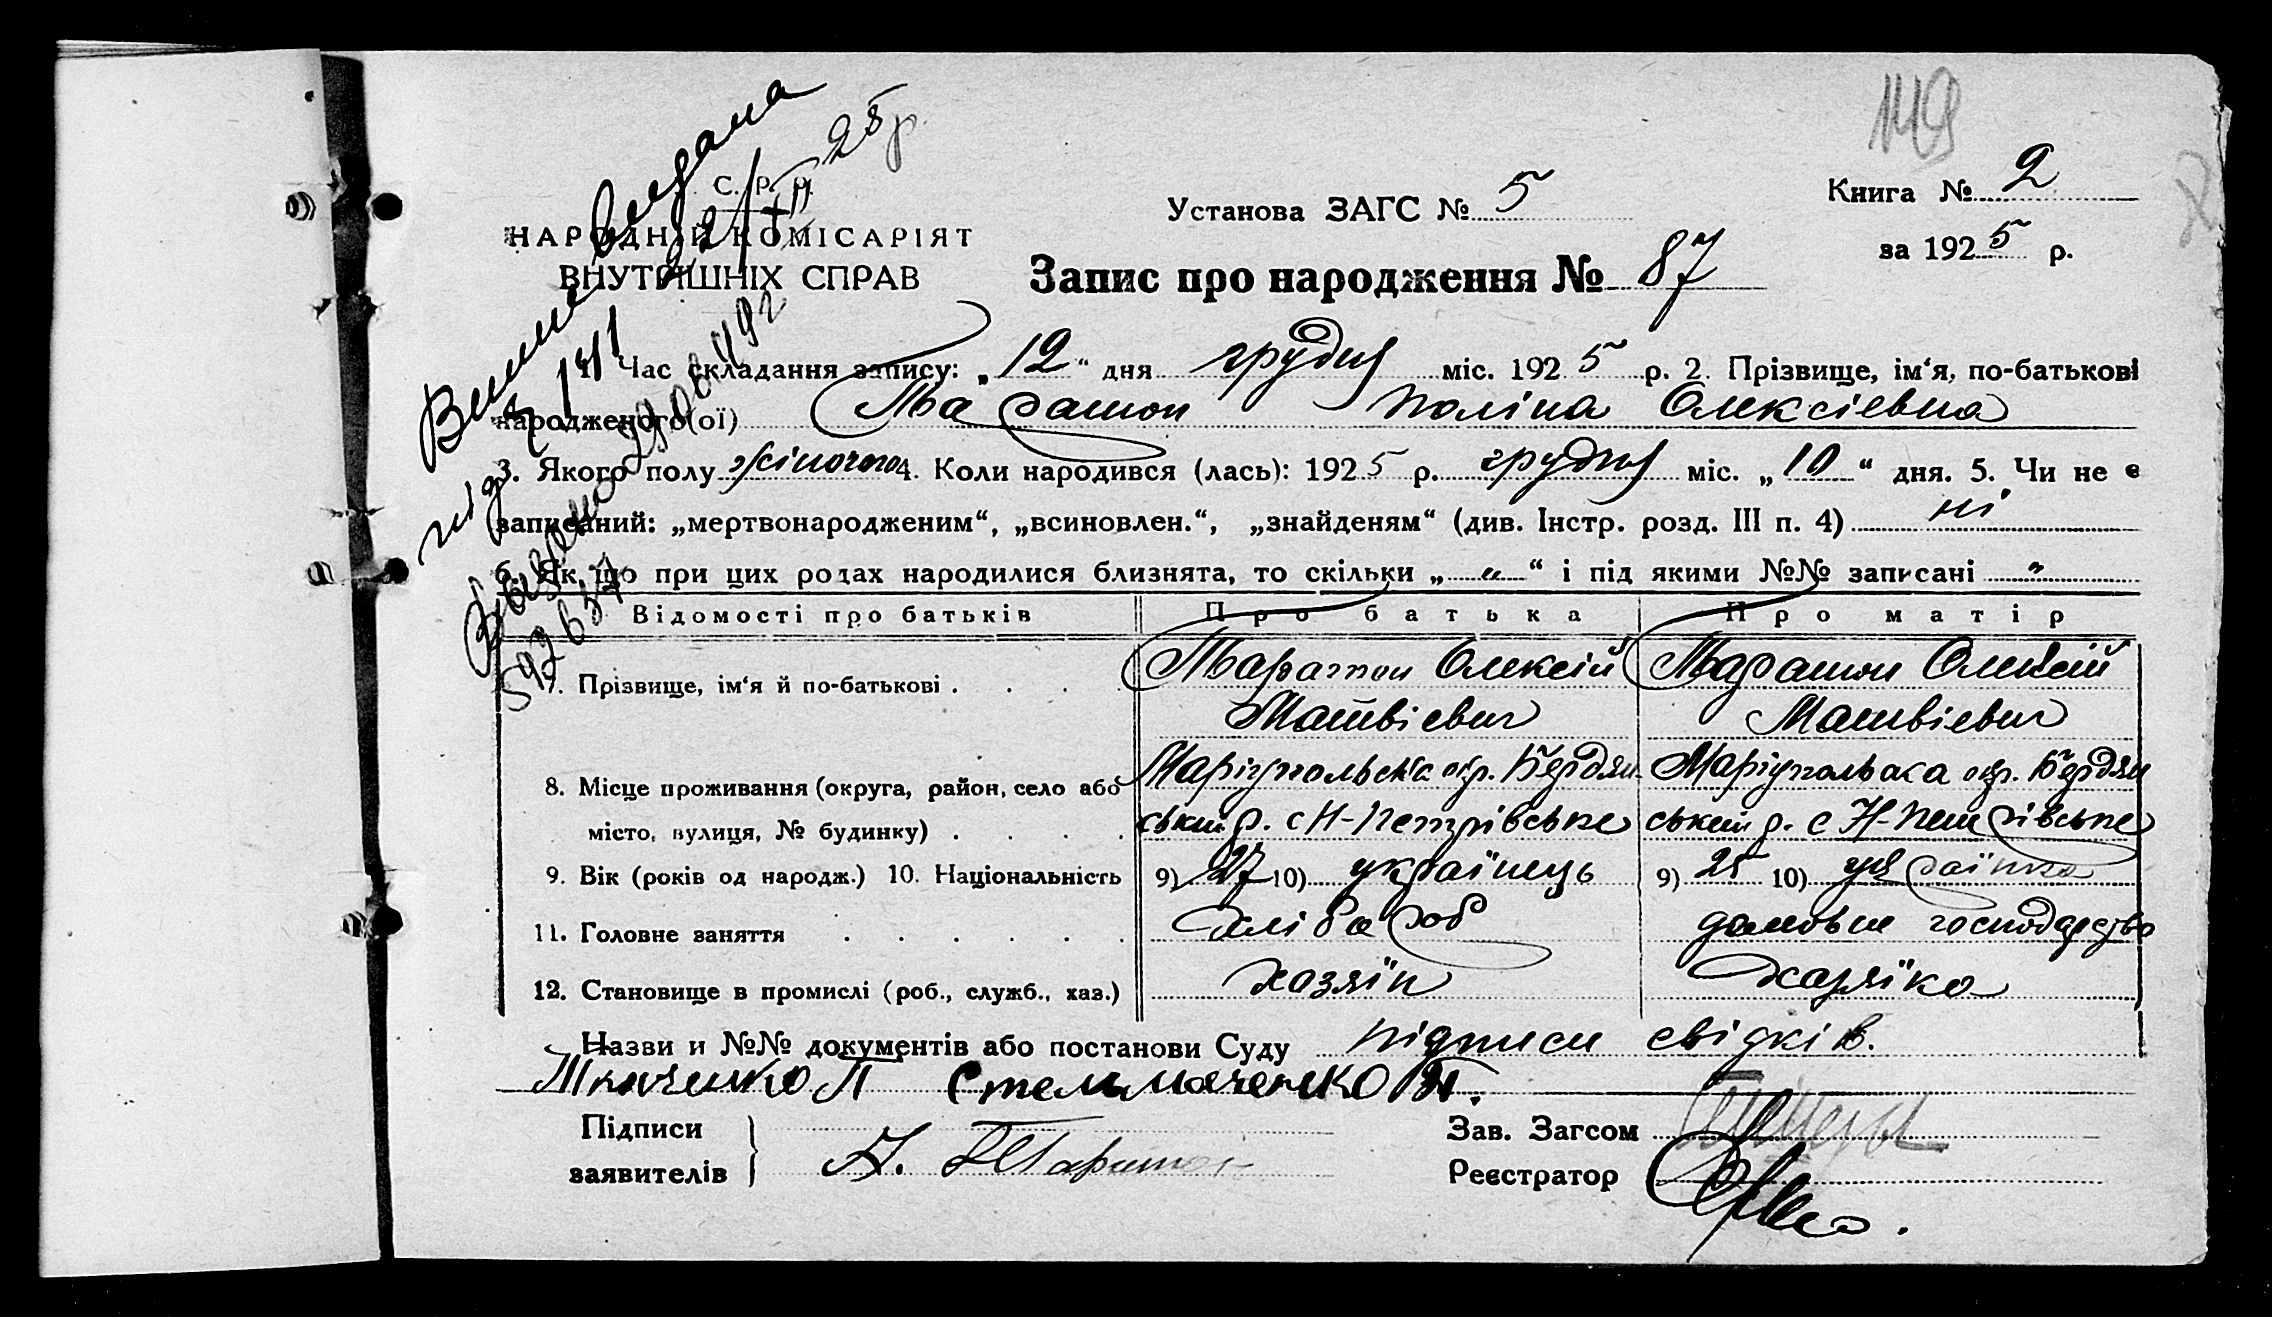 119
Книга № 2
за 1925 р.
С. Р. Р.
НАРОДНІЙ КОМІСАРІЯТ
ВНУТРІШНІХ СПРАВ
Установа ЗАГС № 5
Запис про народження № 87
видана
22/XII 25 р.
1. Час складання запису: „12“ дня грудня міс. 1925 р. 2. Прізвище, ім‘я, по-батькові
народженого(ої) Таратон Поліна Олексіевна
3. Якого полу жіночого 4. Коли народився (лась): 1925 р. грудня міс. „10“ дня. 5. Чи не є
записаний: „мертвонародженим“, „всиновлен.“, „знайденям“ (див. Інстр. розд. III п. 4) ні
6. Як що при цих родах народилися близнята, то скільки „ „ “ і під якими №№ записані "
Відомості про батьків Про батька Про матір
7. Прізвище, ім‘я й по-батькові . Таратон Олексій Таратон Олексій
Матвіевич Матвіевич
8. Місце проживання (округа, район, село або Маріупольська окр. Бердян- Маріупольска окр. Бердян
місто, вулиця, № будинку) . ський р. с Н-Петрівське ський р. с Н-Петрівське
9. Вік (років од народж.) 10. Національність 9) 27 10) українець 9) 25 10) українка
11. Головне заняття хлібороб домовне господарство
12. Становище в промислі (роб., служб., хаз.) хозяїн хазяїка
Назви и №№ документів або постанови Суду підписи свідків.
Ткаченко П Стельмаченко
Підписи
заявителів А. Таратон
Зав. Загсом
Реєстратор